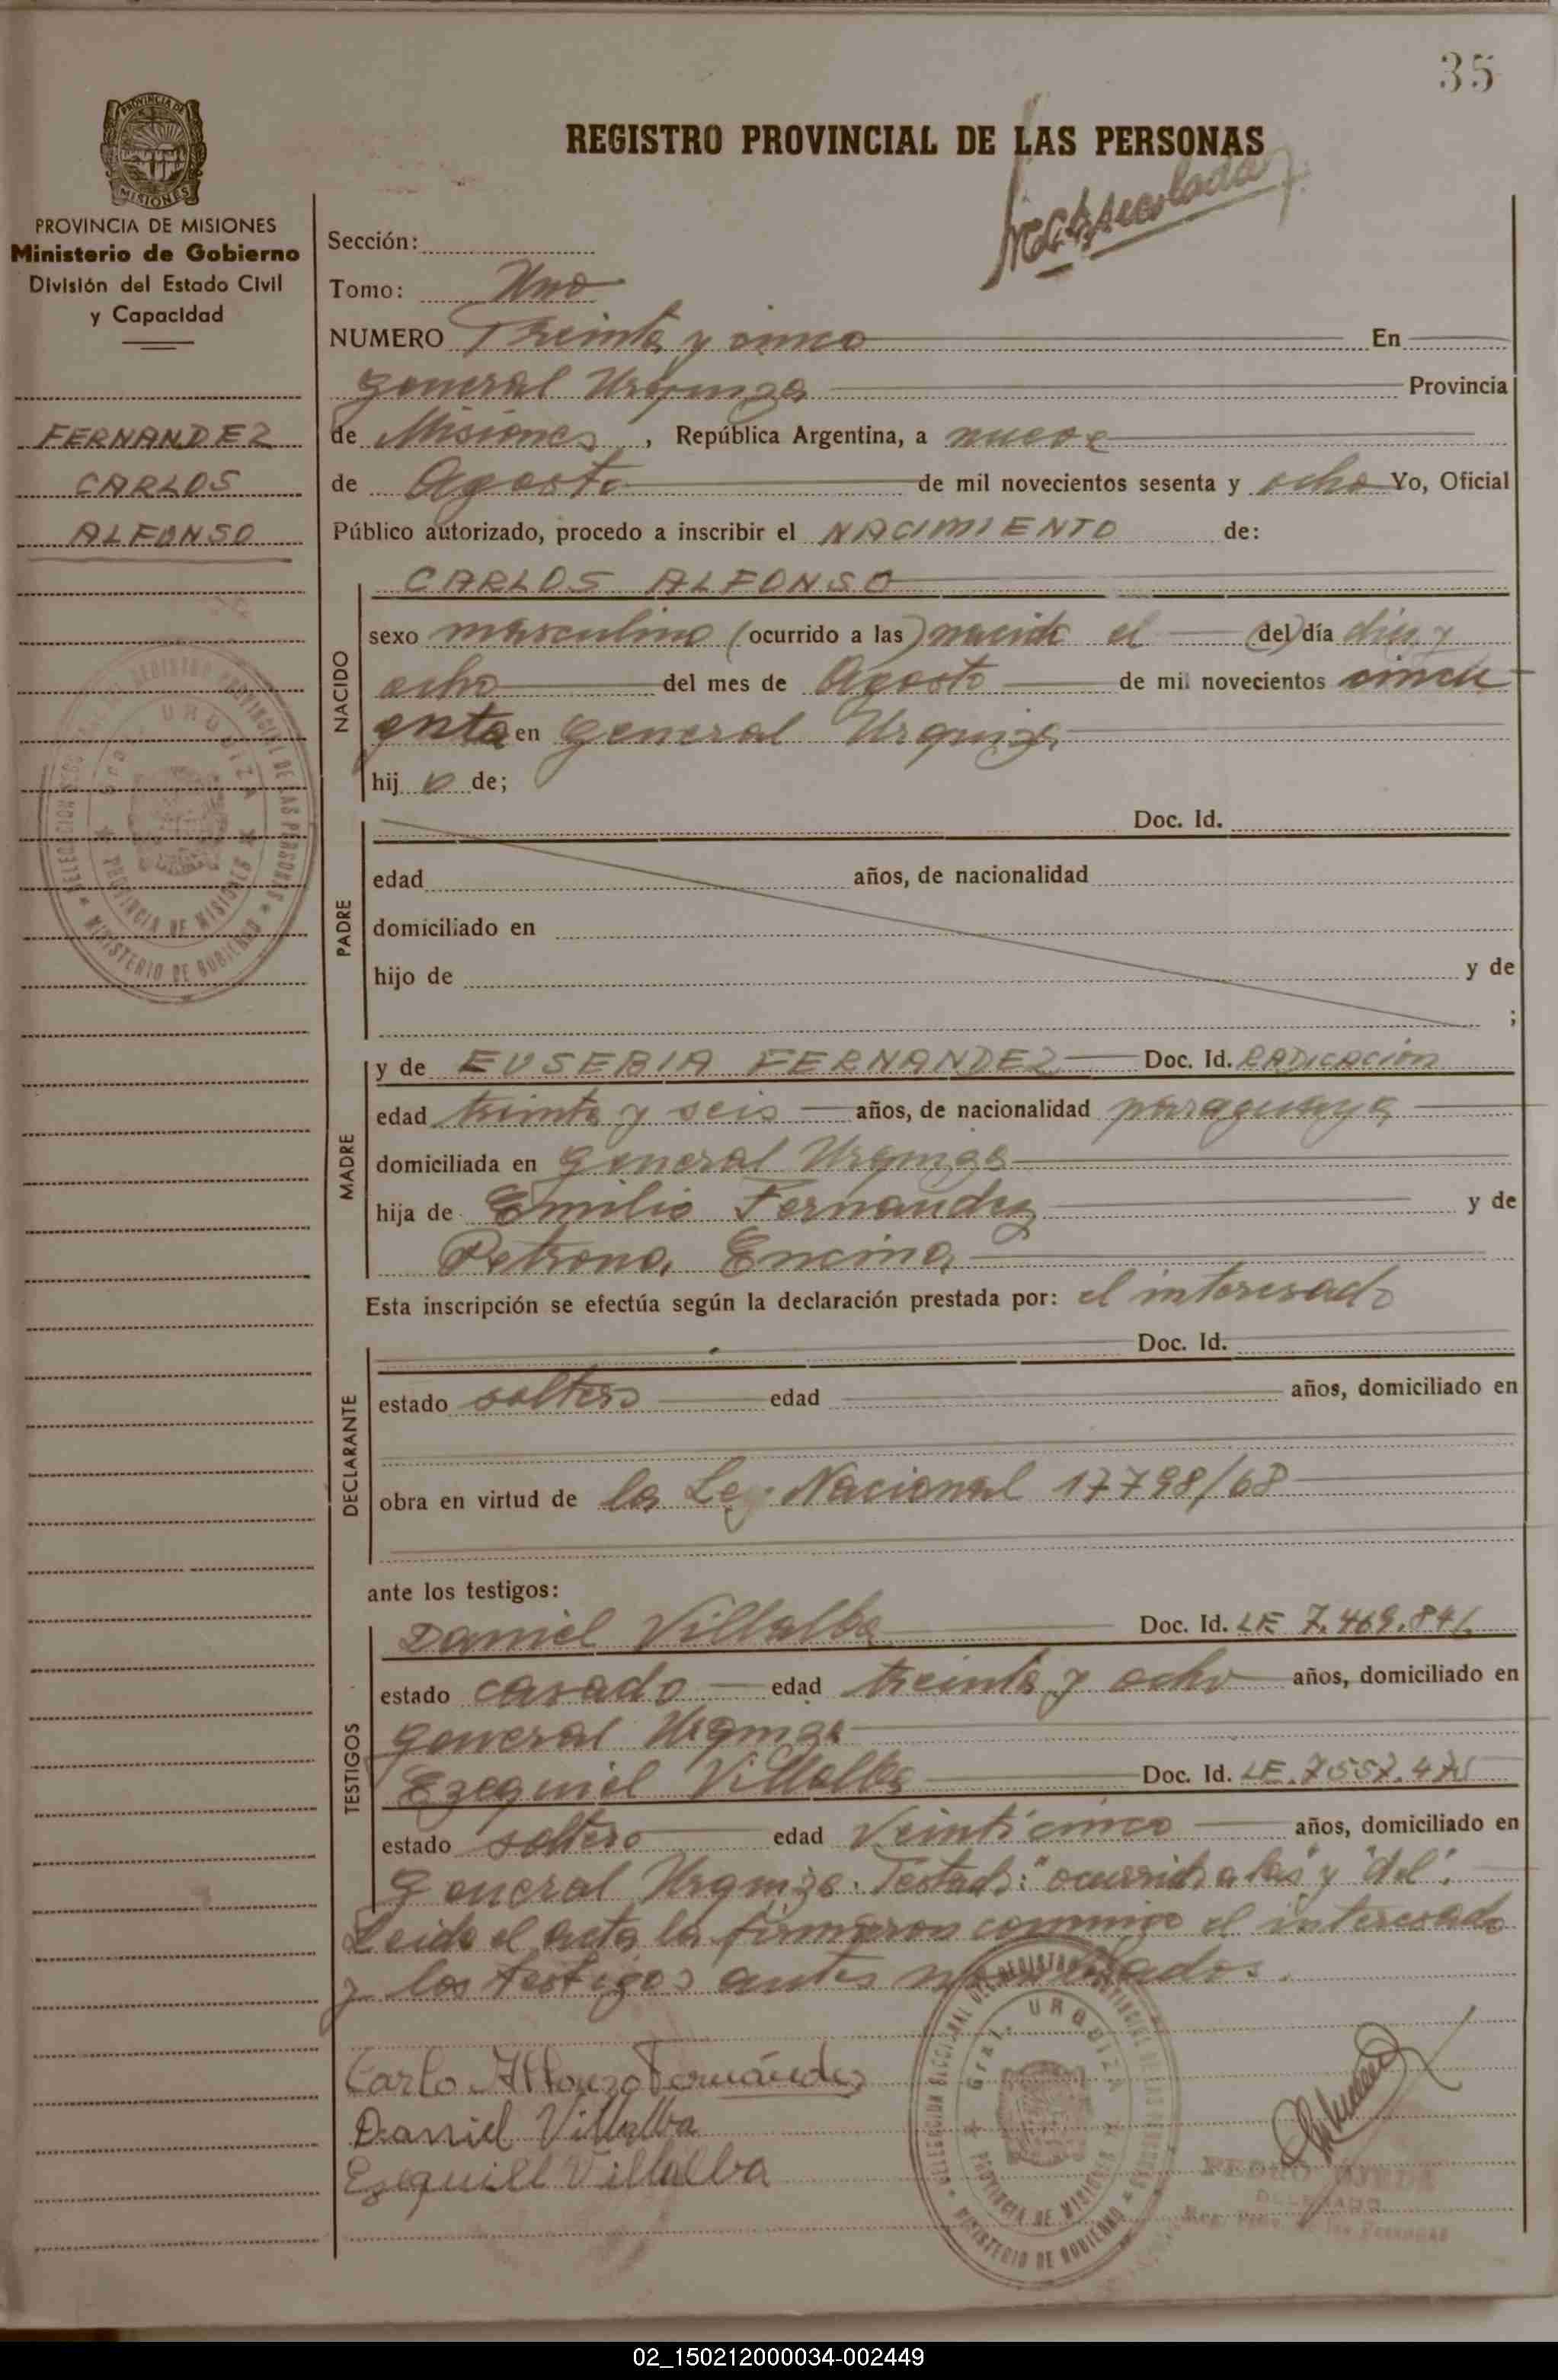 35
PROVINCIA DE MISIONES
PROVINCIA DE MISIONES
Ministerio de Gobierno
División del Estado Civil
y Capacidad
FERNANDEZ
CARLOS
ALFONSO
REGISTRO PROVINCIAL DE LAS PERSONAS
Sección:
Tomo: Uno
NUMERO Treinta y cinco En
General Urquiza Provincia
de Misiones, República Argentina, a nueve
de Agosto de mil novecientos sesenta y ocho Yo, Oficial
Público autorizado, procedo a inscribir el NACIMIENTO de:
NACIDO
CARLOS ALFONSO
sexo masculino (ocurrido a las) nacido el (del) día diez y
ocho del mes de Agosto de mil novecientos cincu
enta en General Urquiza
hijo de;
PADRE
Doc. Id.
edad años, de nacionalidad
domiciliado en
hijo de y de
;
MADRE
y de EUSEBIA FERNANDEZ Doc. Id. RADICACION
edad treinta y seis años, de nacionalidad paraguaya
domiciliada en General Urquiza
hija de Emilio Fernandez y de
Petrona Encina
Esta inscripción se efectúa según la declaración prestada por: el interesado
DECLARANTE
Doc. Id.
estado soltero edad años, domiciliado en
obra en virtud de la Ley Nacional 17798/68
ante los testigos:
TESTIGOS
Daniel Villalba Doc. Id. LE 7.469.841
estado casado edad treinta y ocho años, domiciliado en
General Urquiza
Ezequiel Villalba Doc. Id. LE.
estado soltero edad Veinticinco años, domiciliado en
General Urquiza. Testado: "ocurrido a las" y "del".
Leido el acta la firmaron conmigo el interesado
y los testigos antes nombrados.
Carlo Alfonzo Fernández
Daniel Villalba
Ezequiell Villalba
DELEGACION SECCIONAL DEL REGISTRO PROVINCIAL DE LAS PERSONAS
Gral. URQUIZA
PROVINCIA DE MISIONES
MINISTERIO DE GOBIERNO
PEDRO OJEDA
DELEGADO
Reg. Prov. de las Personas
02_150212000034-002449